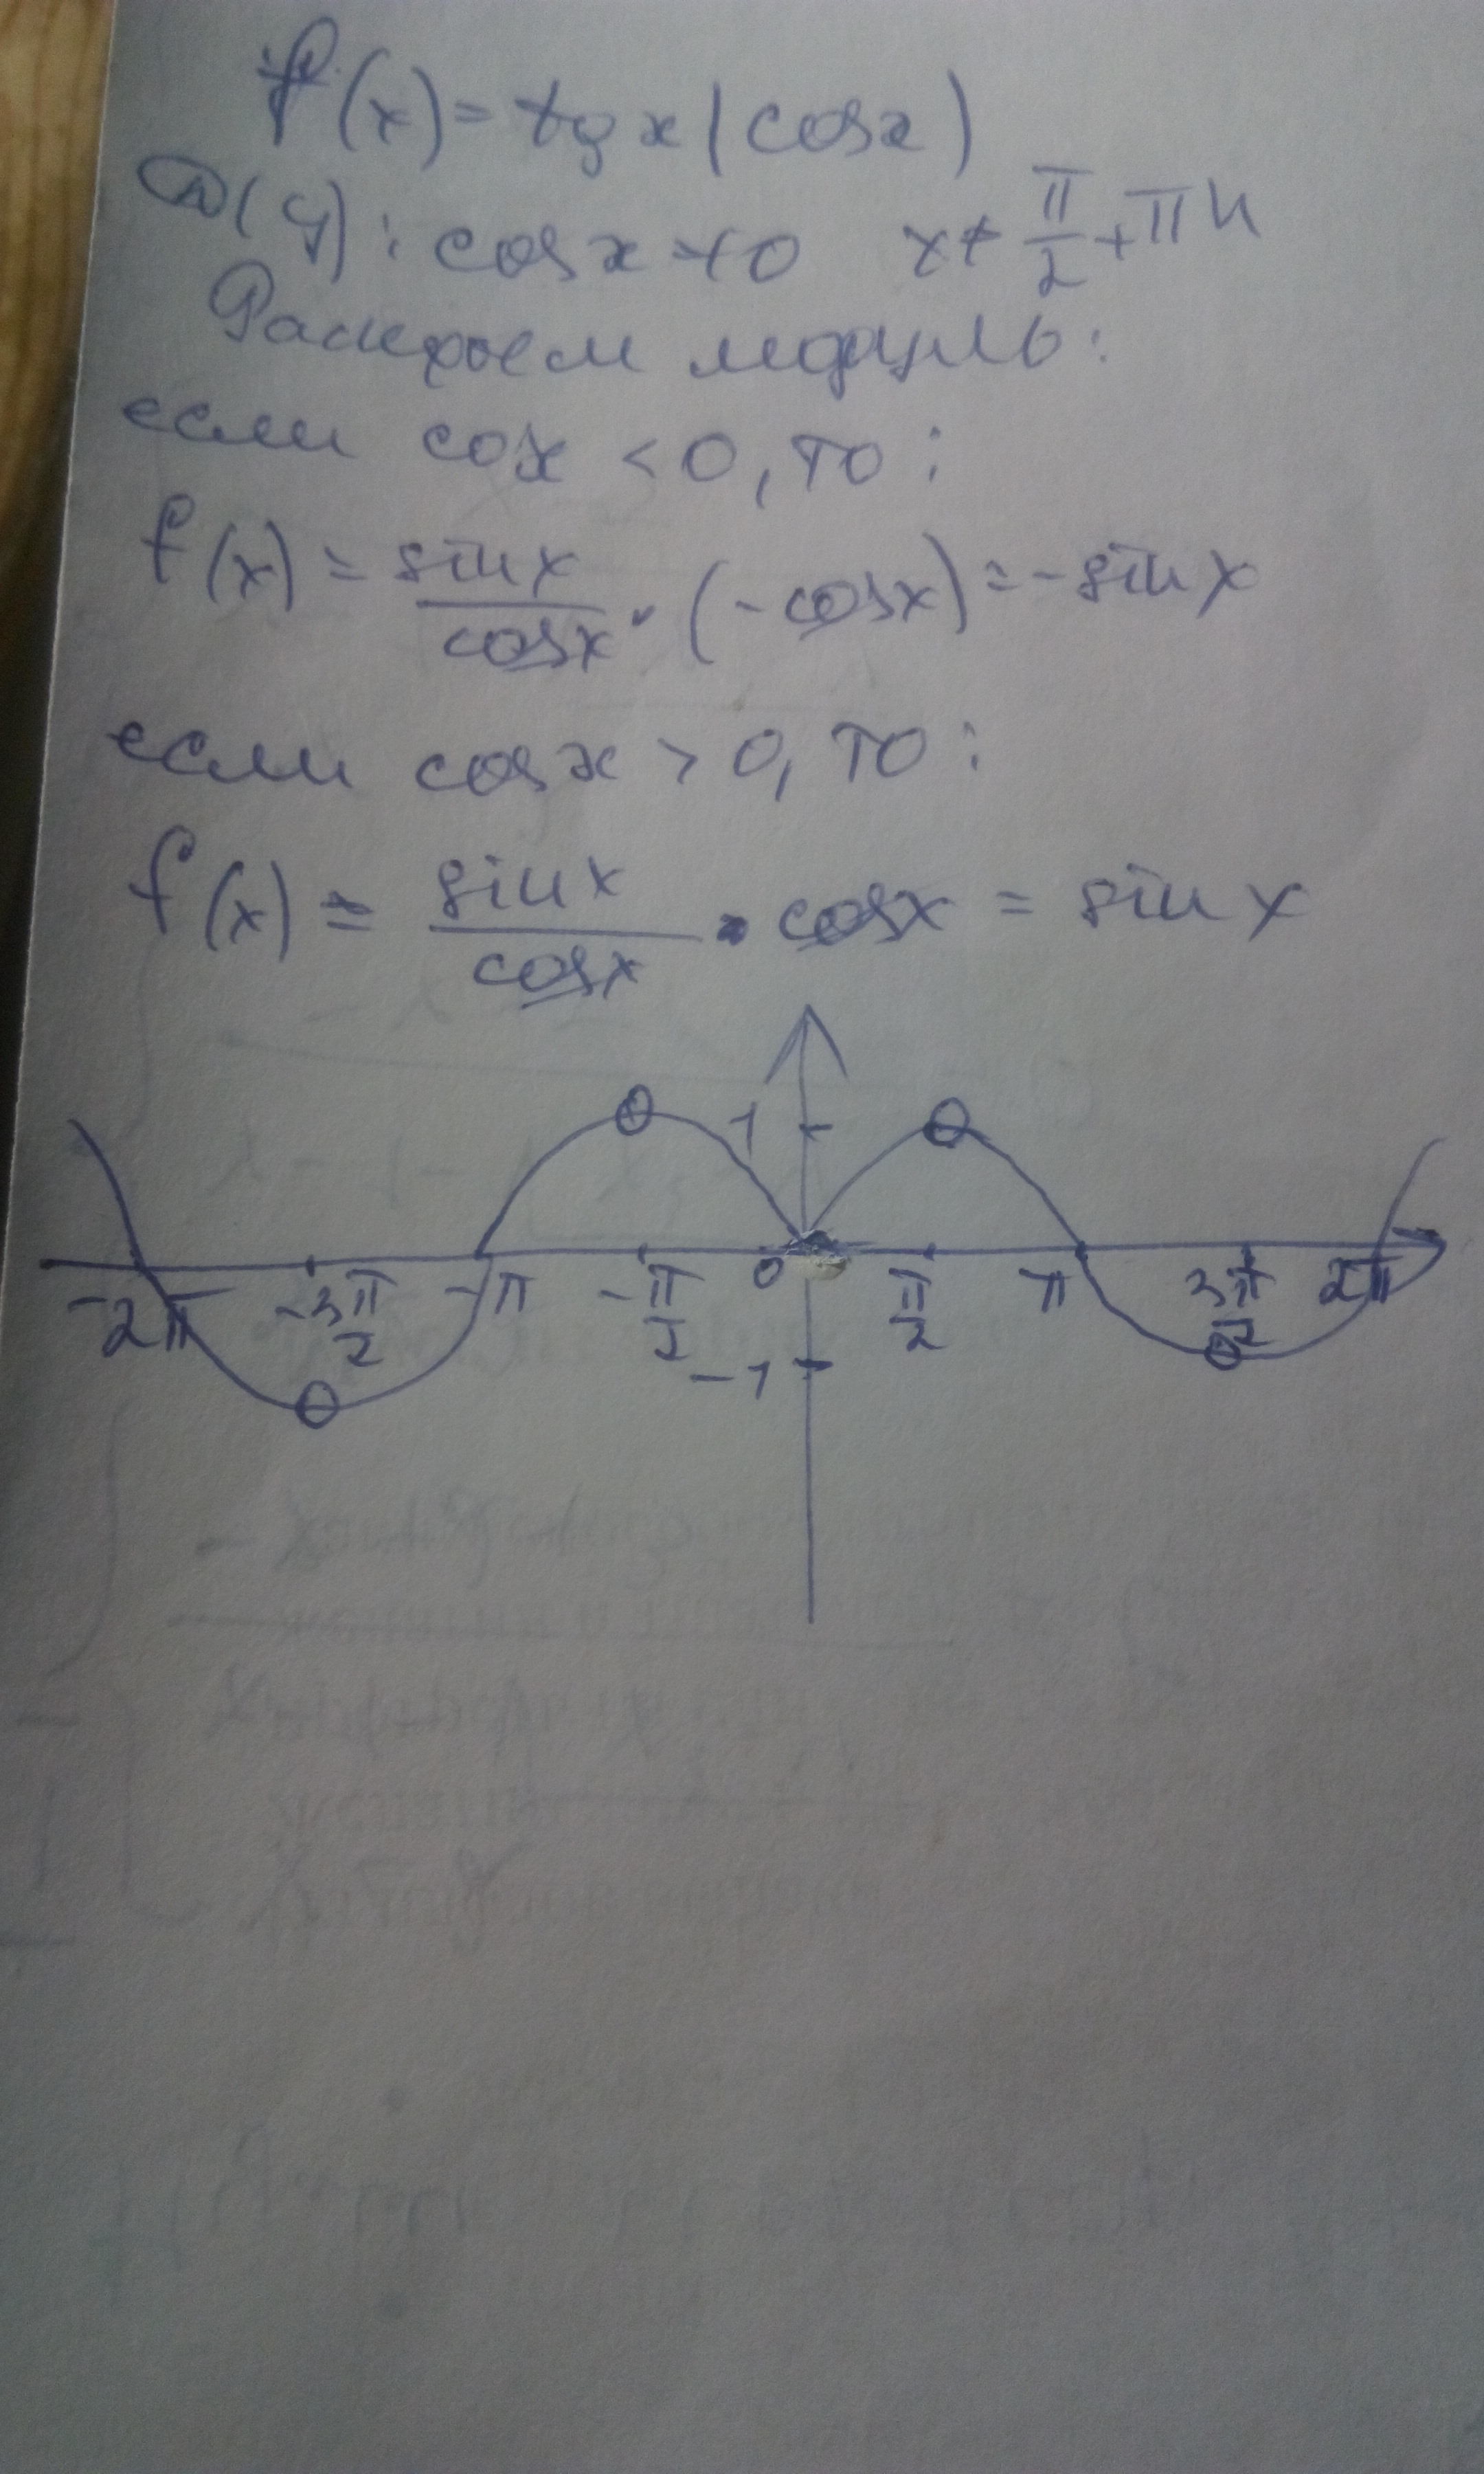 f(x) = tg x |cos x|
D(y): cos x ≠ 0 x ≠ π/2 + πn
Раскроем модуль:
если cox < 0, то:
f(x) = sin x / cos x · (-cos x) = -sin x
если cos x > 0, то:
f(x) = sin x / cos x · cos x = sin x
1
-2π -3π/2 -π -π/2 0 π/2 π 3π/2 2π
-1